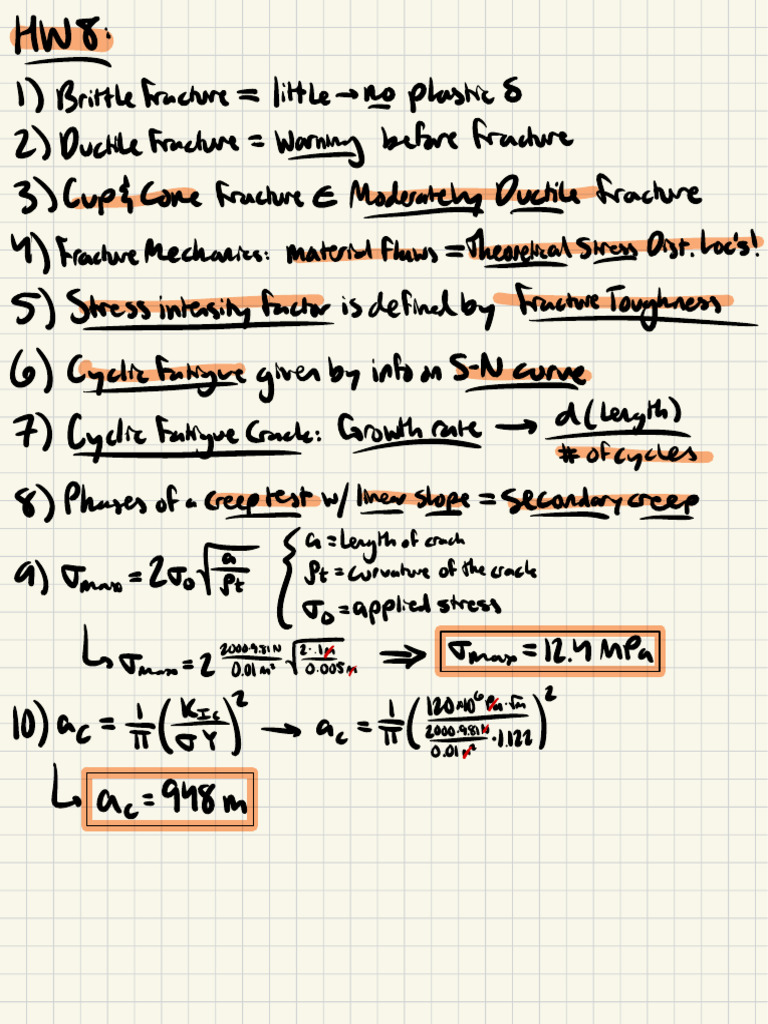 HW8:
1) Brittle Fracture = little → no plastic δ
2) Ductile Fracture = Warning before fracture
3) Cup & Cone Fracture ∈ Moderately Ductile fracture
4) Fracture Mechanics: material flaws = Theoretical Stress Dist. Loc's!
5) Stress intensity factor is defined by Fracture Toughness
6) Cyclic Fatigue given by info on S-N curve
7) Cyclic Fatigue Crack: Growth rate → d(length) / # of cycles
8) Phases of a creep test w/ linear slope = Secondary creep
9) σmax = 2σ0 √(a/ρt) { a = Length of crack
ρt = curvature of the crack
σ0 = applied stress
↳ σmax = 2 (2000·9.81N / 0.01 m²) √(2·.1m / 0.005m) ⇒ σmax = 12.4 MPa
10) ac = 1/π (KIc / σY)² → ac = 1/π (120×10⁶ Pa·√m / (2000·9.81N / 0.01m² · 1.122))²
↳ ac = 948 m